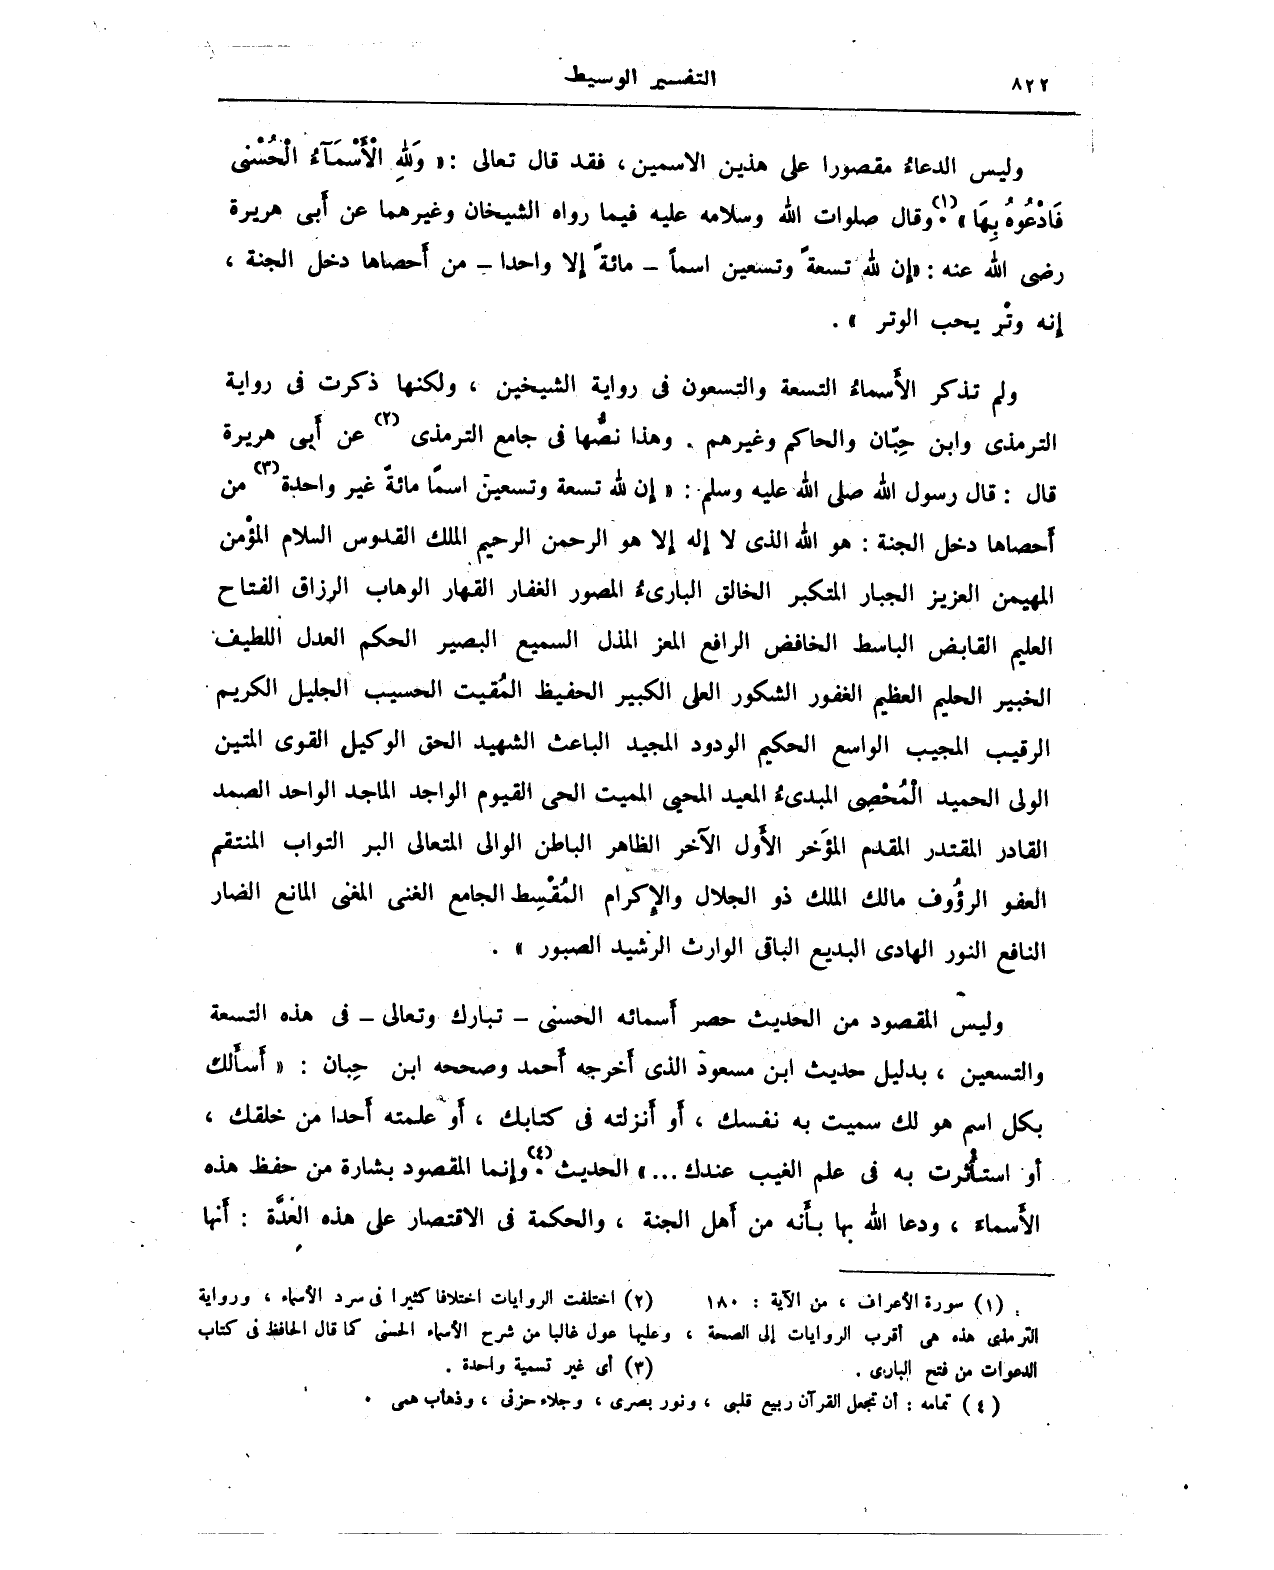 ٨٢٢
التفسير الوسيط
وليس الدعاءُ مقصورا على هذين الاسمين ، فقد قال تعالى : « وَلِلهِ الْأَسْمَآءُ الْحُسْنَى
فَادْعُوهُ بِهَا » (١). وقال صلوات الله وسلامه عليه فيما رواه الشيخان وغيرهما عن أَبى هريرة
رضى الله عنه : «إن لله تسعةً وتسعين اسماً – مائةً إلا واحدا – من أَحصاها دخل الجنة ،
إنه وتْر يحب الوتر » .
ولم تذكر الأَسماءُ التسعة والتسعون فى رواية الشيخين ، ولكنها ذكرت فى رواية
الترمذى وابن حِبّان والحاكم وغيرهم . وهذا نصُّها فى جامع الترمذى (٢) عن أَبى هريرة
قال : قال رسول الله صلى الله عليه وسلم : « إن لله تسعة وتسعين اسمًا مائةً غير واحدة (٣) من
أَحصاها دخل الجنة : هو الله الذى لا إله إلا هو الرحمن الرحيم الملك القدوس السلام المؤْمن
المهيمن العزيز الجبار المتكبر الخالق البارىءُ المصور الغفار القهار الوهاب الرزاق الفتاح
العليم القابض الباسط الخافض الرافع المعز المذل السميع البصير الحكم العدل اللطيف
الخبير الحليم العظيم الغفور الشكور العلى الكبير الحفيظ المُقيت الحسيب الجليل الكريم
الرقيب المجيب الواسع الحكيم الودود المجيد الباعث الشهيد الحق الوكيل القوى المتين
الولى الحميد الْمُحْصِى المبدىءُ المعيد المحيى المميت الحى القيوم الواجد الماجد الواحد الصمد
القادر المقتدر المقدم المؤَخر الأَول الآخر الظاهر الباطن الوالى المتعالى البر التواب المنتقم
العفو الرؤُوف مالك الملك ذو الجلال والإكرام المُقْسِط الجامع الغنى المغنى المانع الضار
النافع النور الهادى البديع الباقى الوارث الرشيد الصبور » .
وليس المقصود من الحديث حصر أَسمائه الحسنى – تبارك وتعالى – فى هذه التسعة
والتسعين ، بدليل حديث ابن مسعود الذى أَخرجه أَحمد وصححه ابن حِبان : « أَسأَلك
بكل اسم هو لك سميت به نفسك ، أَو أَنزلته فى كتابك ، أَو علمته أَحدا من خلقك ،
أو استأْثرت به فى علم الغيب عندك ... » الحديث (٤). وإنما المقصود بشارة من حفظ هذه
الأَسماءَ ، ودعا الله بها بأَنه من أَهل الجنة ، والحكمة فى الاقتصار على هذه العِدَّة : أَنها
(١) سورة الأعراف ، من الآية : ١٨٠ (٢) اختلفت الروايات اختلافا كثيرا فى سرد الأسماء ، ورواية
الترمذى هذه هى أقرب الروايات إلى الصحة ، وعليها عول غالبا من شرح الأسماء الحسنى كما قال الحافظ فى كتاب
الدعوات من فتح البارى . (٣) أى غير تسمية واحدة .
(٤) تمامه : أن تجعل القرآن ربيع قلبى ، ونور بصرى ، وجلاء حزنى ، وذهاب همى .